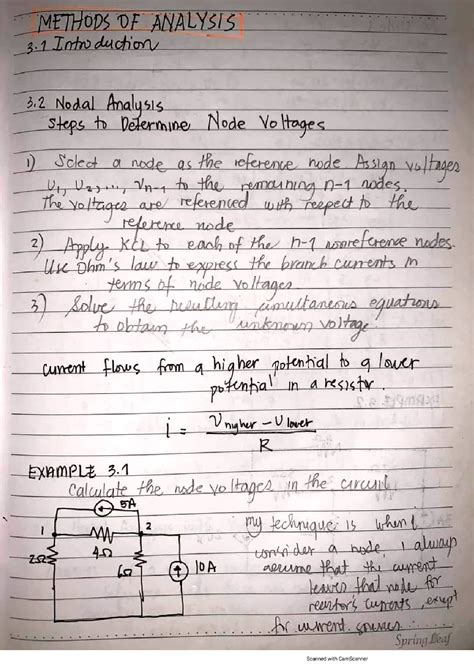 METHODS OF ANALYSIS
3.1 Introduction
3.2 Nodal Analysis
Steps to Determine Node Voltages
1) Select a node as the reference node Assign voltages
υ1, υ2, ..., υn-1 to the remaining n-1 nodes.
The voltages are referenced with respect to the
reference node
2) Apply KCL to each of the n-1 nonreference nodes.
Use Ohm's law to express the branch currents in
terms of node voltages.
3) Solve the resulting simultaneous equations
to obtain the unknown voltage
current flows from a higher potential to a lower
potential in a resistor.
i = υhigher - υlower
R
EXAMPLE 3.1
Calculate the node voltages in the circuit
5A
1 2
4Ω
2Ω
6Ω
10A
my technique is when I
consider a node, I always
assume that the current
leaves that node for
resistor's currents, except
for current sources
Spring Leaf
Scanned with CamScanner